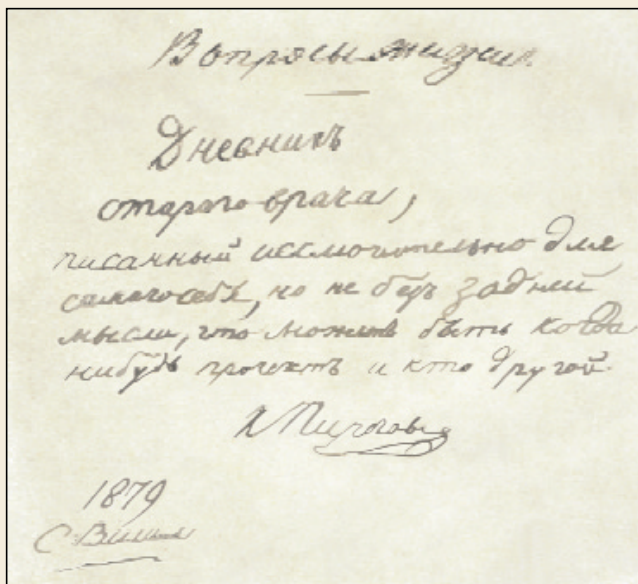 Вопросы жизни.
Дневникъ
стараго врача,
писанный исключительно для
самого себя, но не безъ задней
мысли, что можетъ быть когда
нибудь прочтетъ и кто другой.
Н Пирогов
1879
С. Вишня